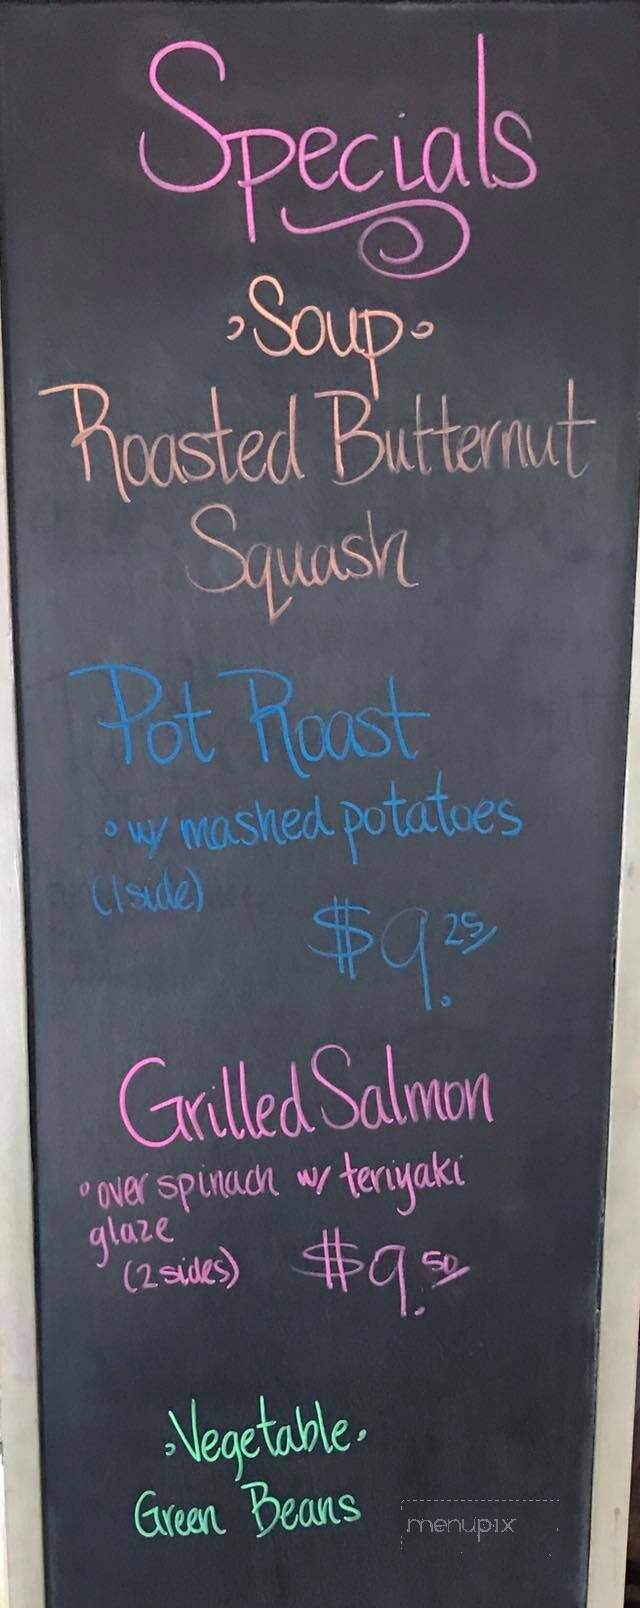 Specials
Soup
Roasted Butternut
Squash
Pot Roast
• w/ mashed potatoes
(1 side)
$9.25
Grilled Salmon
• over spinach w/ teriyaki
glaze
(2 sides) $9.50
Vegetable
Green Beans
menupix